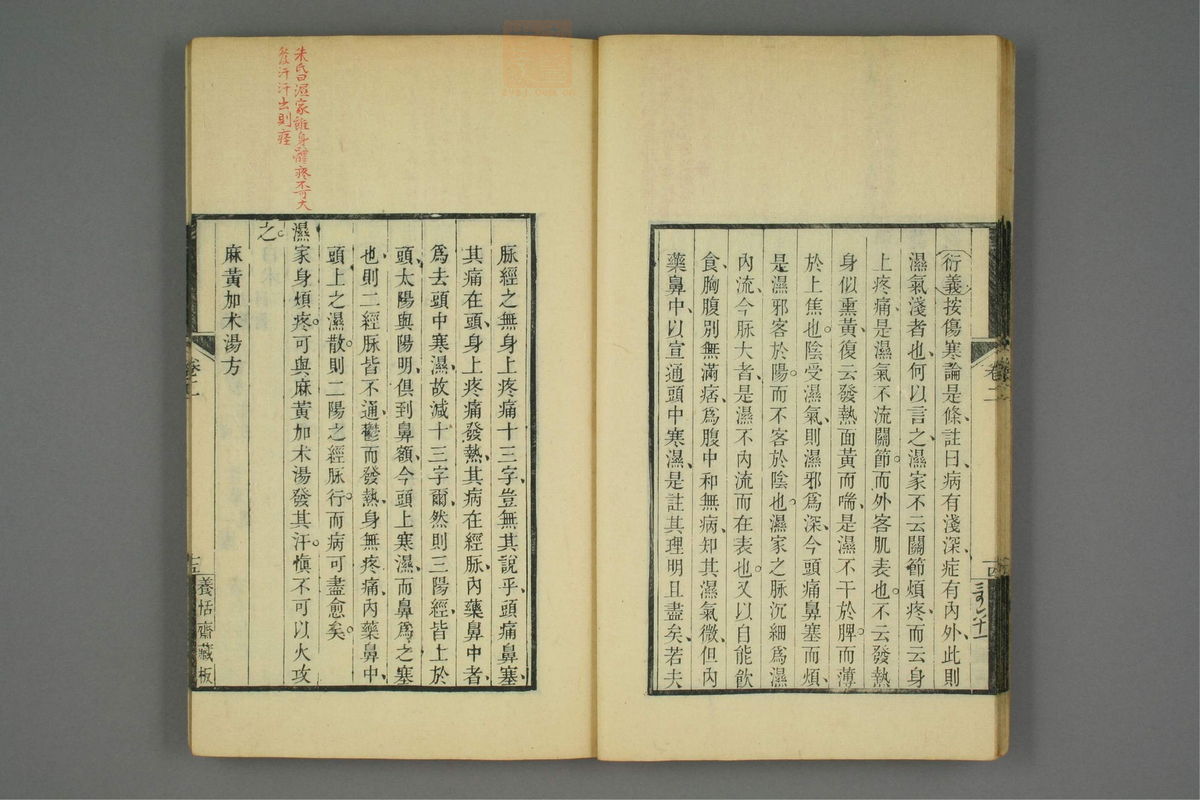 衍義按傷寒論是條註曰病有淺深症有內外此則
濕氣淺者也何以言之濕家不云關節煩疼而云身
上疼痛是濕氣不流關節而外客肌表也不云發熱
身似熏黃復云發熱面黃而喘是濕不干於脾而薄
於上焦也陰受濕氣則濕邪爲深今頭痛鼻塞而煩
是濕邪客於陽而不客於陰也濕家之脉沉細爲濕
內流今脉大者是濕不內流而在表也又以自能飲
食胸腹別無滿痞爲腹中和無病知其濕氣微但內
藥鼻中以宣通頭中寒濕是註其理明且盡矣若夫
卷二
脉經之無身上疼痛十三字豈無其說乎頭痛鼻塞
其痛在頭身上疼痛發熱其病在經脉內藥鼻中者
爲去頭中寒濕故減十三字爾然則三陽經皆上於
頭太陽與陽明俱到鼻額今頭上寒濕而鼻爲之塞
也則二經脉皆不通鬱而發熱身無疼痛內藥鼻中
頭上之濕散則二陽之經脉行而病可盡愈矣
濕家身煩疼可與麻黃加朮湯發其汗愼不可以火攻
之
麻黃加朮湯方
卷二
十五
養恬齋藏板
朱氏曰濕家雖身體疼不可大
發汗汗出則痙